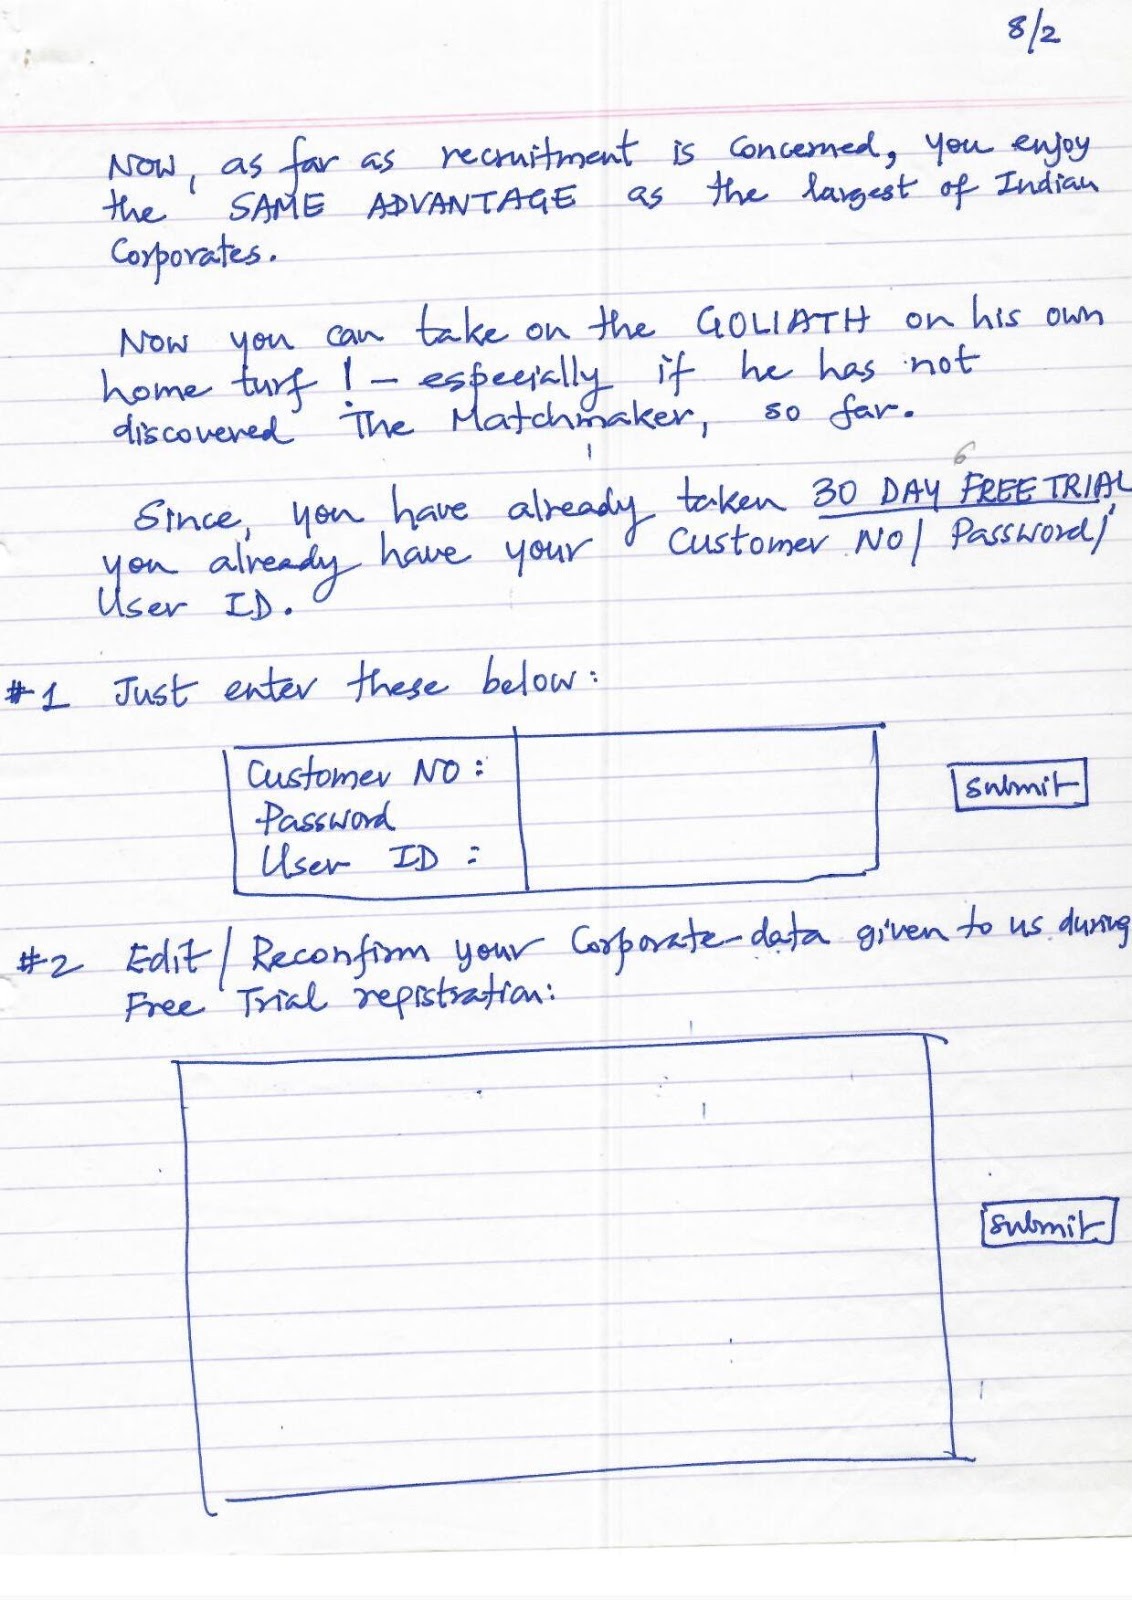 8/2
Now, as far as recruitment is concerned, you enjoy
the SAME ADVANTAGE as the largest of Indian
Corporates.
Now you can take on the GOLIATH on his own
home turf ! – especially if he has not
discovered The Matchmaker, so far.
6
Since, you have already taken 30 DAY FREE TRIAL,
you already have your Customer NO/ Password/
User ID.
#1 Just enter these below:
Customer NO :
Password
User ID :
Submit
#2 Edit/Reconfirm your Corporate-data given to us during
Free Trial registration:
Submit